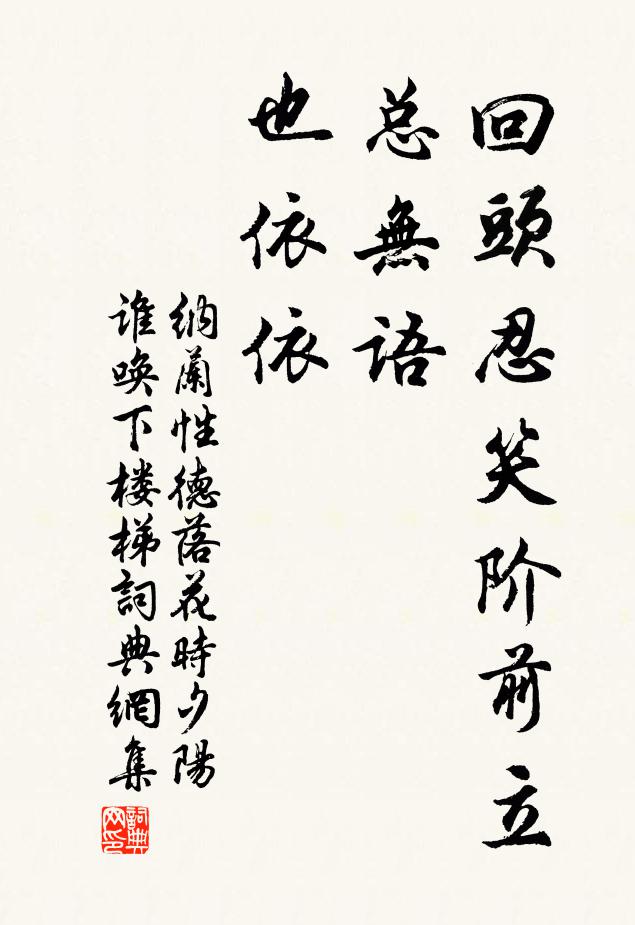 回頭忍笑阶前立
总無語
也依依
纳蘭性德落花時夕陽
谁唤下楼梯詞典網集
詞典
网印